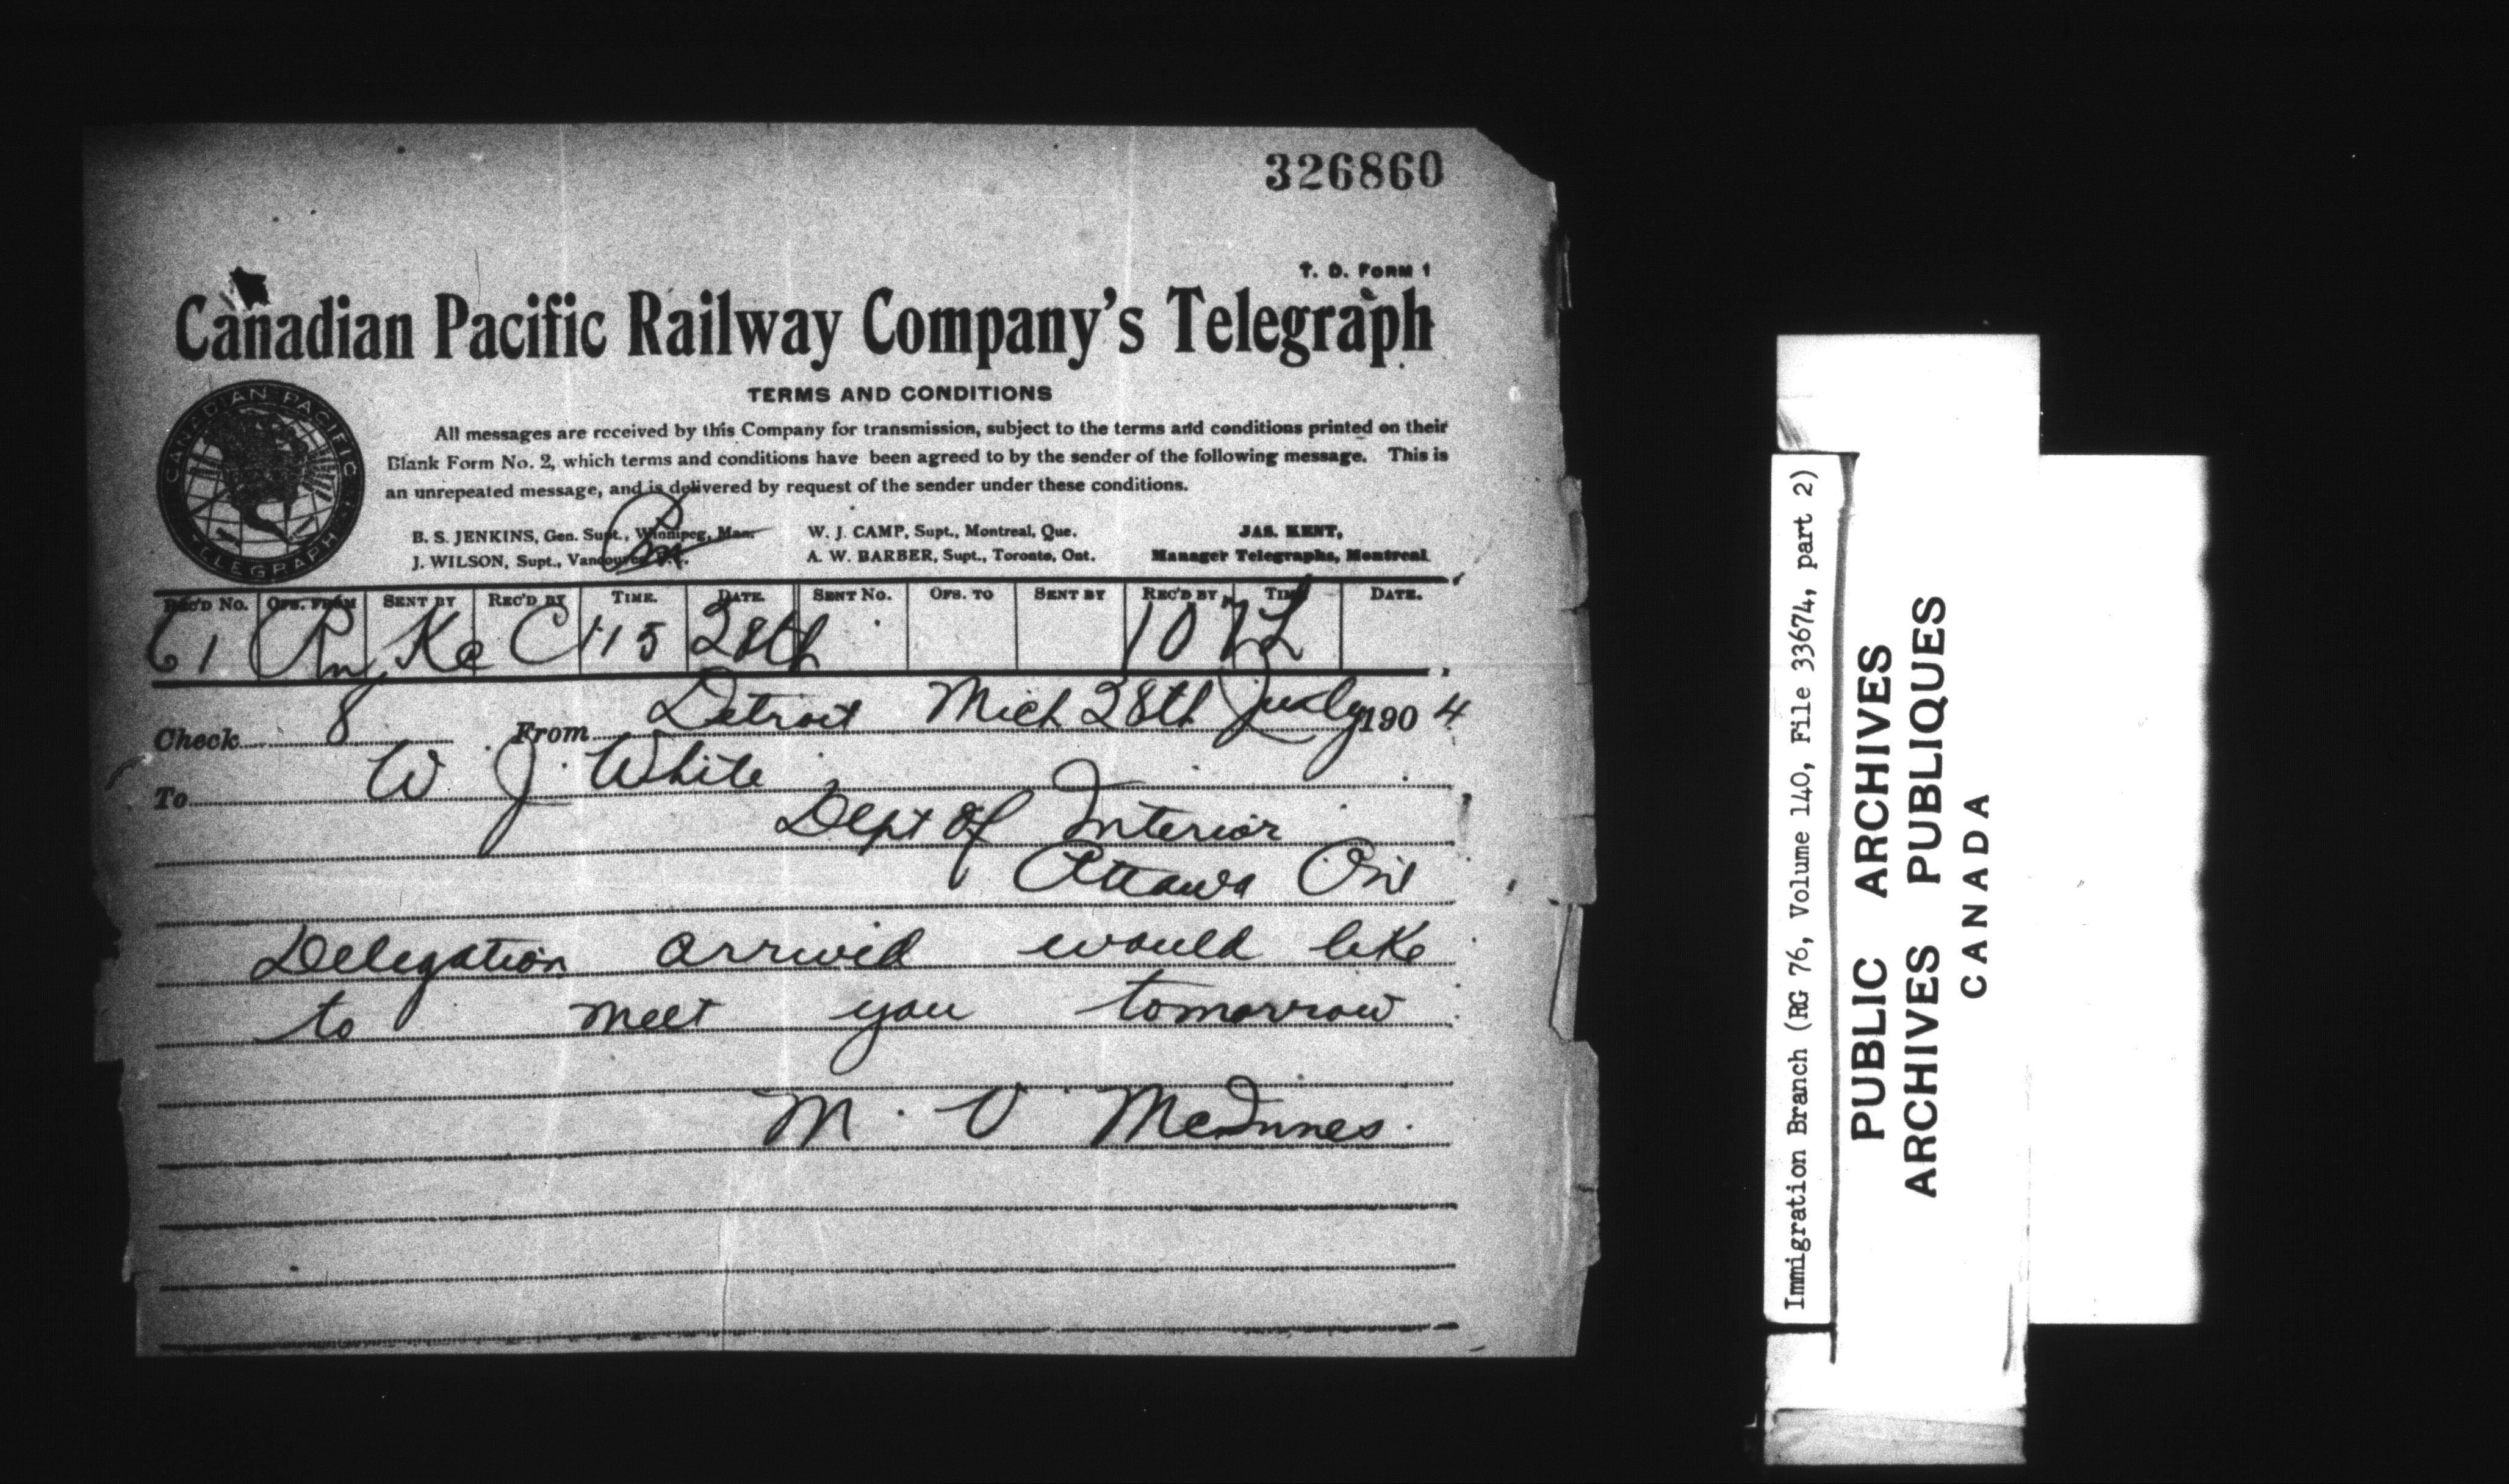 326860
T. D. FORM 1
Canadian Pacific Railway Company's Telegraph
CANADIAN PACIFIC TELEGRAPH
TERMS AND CONDITIONS
All messages are received by this Company for transmission, subject to the terms and conditions printed on their
Blank Form No. 2, which terms and conditions have been agreed to by the sender of the following message. This is
an unrepeated message, and is delivered by request of the sender under these conditions.
B. S. JENKINS, Gen. Supt., Winnipeg, Man. W. J. CAMP, Supt., Montreal, Que. JAS. KENT,
J. WILSON, Supt., Vancouver, B.C. A. W. BARBER, Supt., Toronto, Ont. Manager Telegraphs, Montreal
REC'D NO. OFS. FROM SENT BY REC'D BY TIME. DATE. SENT NO. OFS. TO SENT BY REC'D BY TIME DATE.
61 Ke C 115 28th 10
Check 8 From Detroit Mich 28th July 1904
To W J. White
Dept of Interior
Ottawa Ont
Delegation arrived would like
to meet you tomorrow
M. V McInnes.
Immigration Branch (RG 76, Volume 140, File 33674, part 2)
PUBLIC ARCHIVES
ARCHIVES PUBLIQUES
CANADA